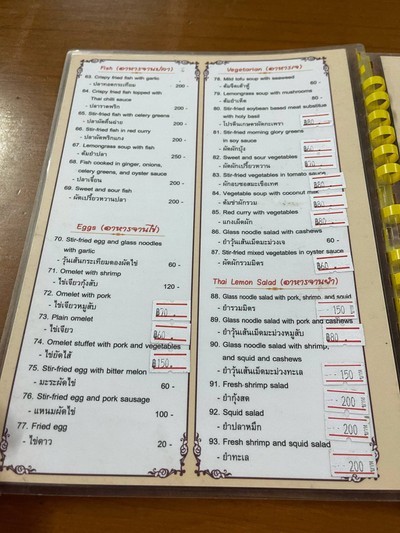 Fish (อาหารจานปลา)
63. Crispy fried fish with garlic
- ปลาทอดกระเทียม 200 -
64. Crispy fried fish topped with
Thai chilli sauce
- ปลาราดพริก 200 -
65. Stir-fried fish with celery greens
- ปลาผัดคื่นฉ่าย 200 -
66. Stir-fried fish in red curry
- ปลาผัดพริกแกง 200 -
67. Lemongrass soup with fish
- ต้มยำปลา 250 -
68. Fish cooked in ginger, onions,
celery greens, and oyster sauce
- ปลาเจี๋ยน 200 -
69. Sweet and sour fish
- ผัดเปรี้ยวหวานปลา 200 -
Eggs (อาหารจานไข่)
70. Stir-fried egg and glass noodles
with garlic
- วุ้นเส้นกระเทียมดองผัดไข่ 60 -
71. Omelet with shrimp
- ไข่เจียวกุ้งสับ 120 -
72. Omelet with pork
- ไข่เจียวหมูสับ ฿70.-
73. Plain omelet
- ไข่เจียว ฿60.-
74. Omelet stuffet with pork and vegetables
- ไข่ยัดไส้ ฿150.-
75. Stir-fried egg with bitter melon
- มะระผัดไข่ 60 -
76. Stir-fried egg and pork sausage
- แหนมผัดไข่ 100 -
77. Fried egg
- ไข่ดาว 20 -
Vegetarian (อาหารเจ)
78. Mild tofu soup with seaweed
- ต้มจืดเต้าหู้ 60 -
79. Lemongrass soup with mushrooms
- ต้มยำเห็ด 80 -
80. Stir-fried soybean based meat substitue
with holy basil
- โปรตีนเกษตรผัดกะเพรา ฿80
81. Stir-fried morning glory greens
in soy sauce
- ผัดผักบุ้ง ฿60
82. Sweet and sour vegetables
- ผัดผักเปรี้ยวหวาน ฿70
83. Stir-fried vegetables in tomato sauce
- ผักอบซอสมะเขือเทศ ฿80
84. Vegetable soup with coconut milk
- ต้มข่าผักรวม ฿80
85. Red curry with vegetables
- แกงเผ็ดผัก ฿80
86. Glass noodle salad with cashews
- ยำวุ้นเส้นเม็ดมะม่วงเจ 60 -
87. Stir-fried mixed vegetables in oyster sauce
- ผัดผักรวมมิตร ฿60
Thai Lemon Salad (อาหารจานยำ)
88. Glass noodle salad with pork, shrimp, and squid
- ยำรวมมิตร 150 บาท
89. Glass noodle salad with pork and cashews
- ยำวุ้นเส้นเม็ดมะม่วงหมูสับ ฿80
90. Glass noodle salad with shrimp,
and squid and cashews
- ยำวุ้นเส้นเม็ดมะม่วงทะเล 150 บาท
91. Fresh shrimp salad
- ยำกุ้งสด 200 บาท
92. Squid salad
- ยำปลาหมึก 200 บาท
93. Fresh shrimp and squid salad
- ยำทะเล 200 บาท